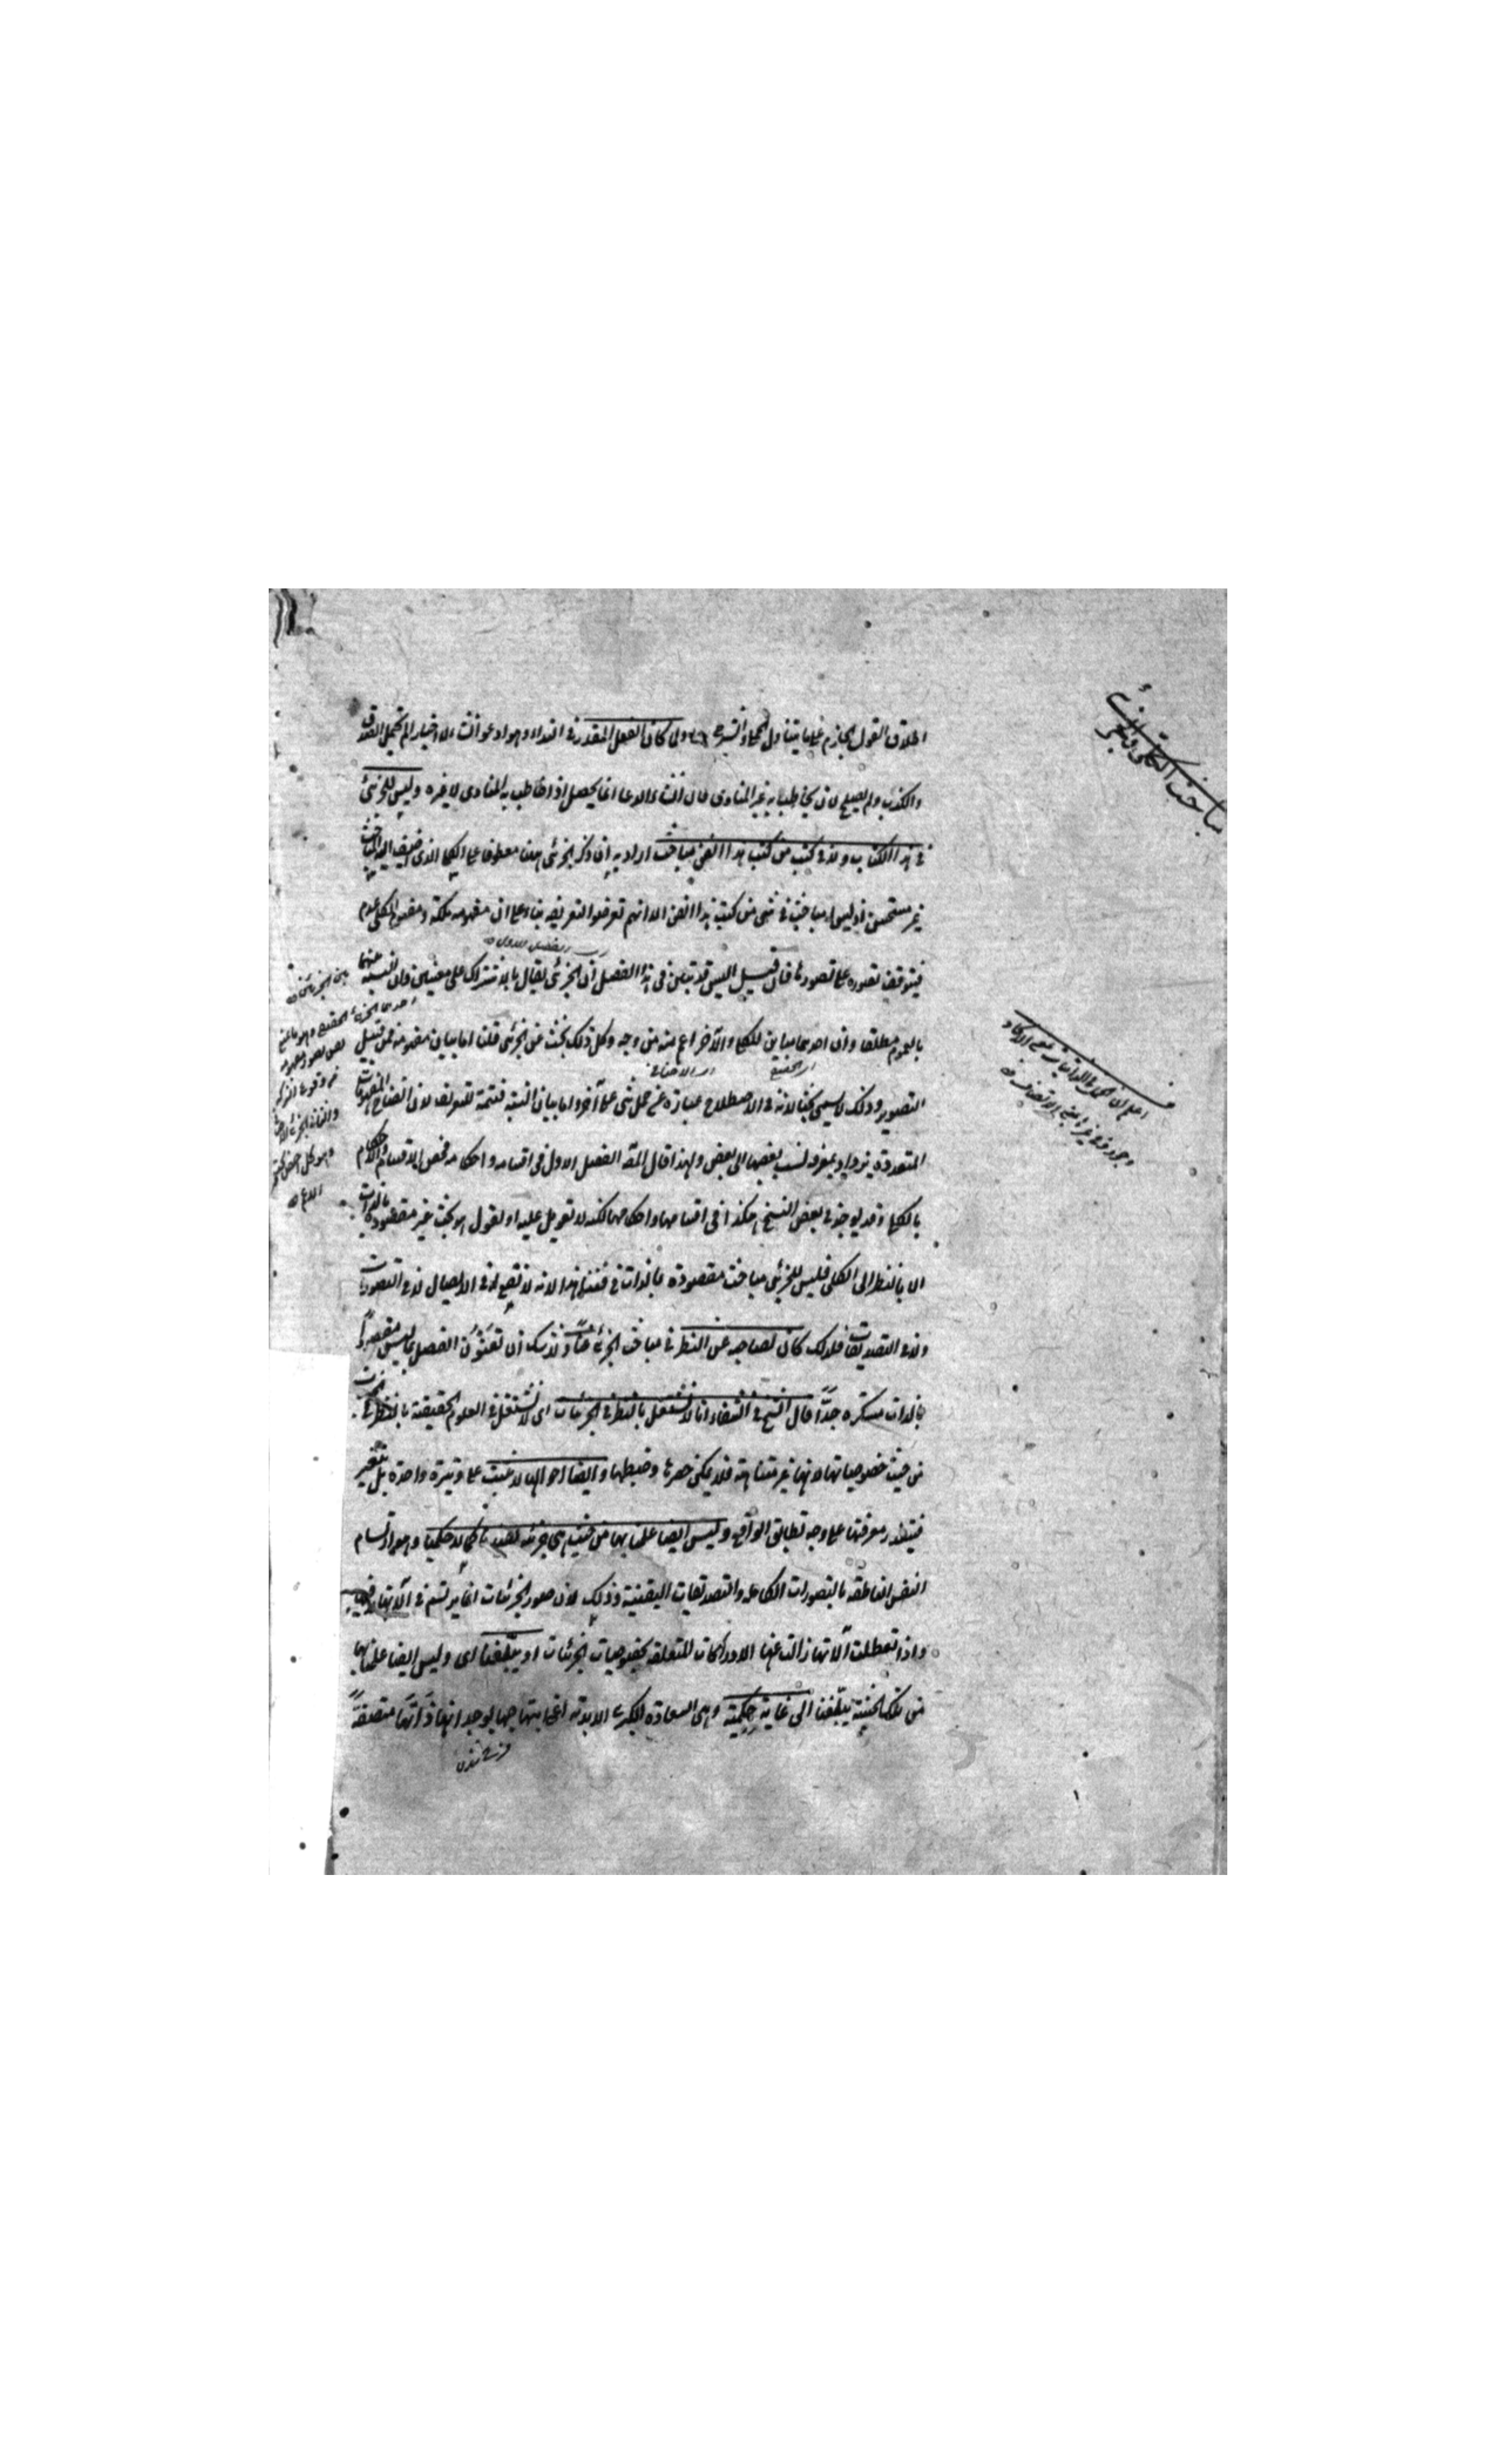 مباحث الكلي والجزئي
اطلاق القول الجازم على ما يتناول الحملي والشرطي ولما كان الفعل المقدر في النداء وهو ادعو انشاء لا اخبار لم يحتمل الصدق
والكذب ولم يصلح لان يخاطب به غير المنادى فان انشاء الدعا انما يحصل اذا خاطب به المنادى لا غيره وليس للجزئي
في هذا الكتاب ولا في كتب من كتب هذا الفن مباحث اراد به ان ذكر الجزئي ههنا معطوفا على الكلي الذي اضيف اليه المباحث
غير مستحسن اذ ليس له مباحث في شئ من كتب هذا الفن الا انهم تعرضوا لتعريفه بناء على ان مفهومه ملكة ومفهوم الكلي عدم
فيتوقف تصوره على تصورها فان قيل اليس قد تبين في هذا الفصل ان الجزئي يقال بالاشتراك على معنيين وان النسبة بينهما
بالعموم مطلقا وان احدهما مباين للكلي والآخر اعم منه من وجه وكل ذلك بحث عن الجزئي قلنا اما بيان مفهومه فمن قبيل
التصوير وذلك لا يسمى بحثا لانه في الاصطلاح عبارة عن حمل شئ على آخر واما بيان النسبة فتتمة للتعريف لان اتضاح المفهومات
المتعددة يزداد بمعرفة نسب بعضها الى بعض ولهذا قال المص الفصل الاول في اقسامه واحكامه فخص الاقسام والاحكام
بالكلي وقد يوجد في بعض النسخ هكذا في اقسامهما واحكامهما لكنه لا تعويل عليه او نقول هو بحث غير مقصود بالذات
الا بالنظر الى الكلي فليس للجزئي مباحث مقصودة بالذات في فننا هذا لانه لا نفع له في الايصال لا في التصورات
ولا في التصديقات فلذلك كان لصاحبه عن النظر في مباحث الجزئي غنا ولا شك ان تعنون الفصل بما ليس مقصودا
بالذات مستكره جدا قال الشيخ في الشفاء انا لا نشتغل بالنظر في الجزئيات اى لا نشتغل في العلوم الحقيقية بالنظر في الجزئيات
من حيث خصوصياتها لانها غير متناهية فلا يمكن حصرها وضبطها وايضا احوالها لا تثبت على وتيرة واحدة بل تتغير
فيتعذر معرفتها على وجه تطابق الواقع وليس ايضا علمنا بها من حيث هي جزئية يفيدنا كمالا حكميا وهو ارتسام
النفس الناطقة بالتصورات الكاملة والتصديقات اليقينية وذلك لان صور الجزئيات انما يرتسم في آلاتها لا فيها
واذا تعطلت آلاتها زالت عنها الادراكات المتعلقة بخصوصيات الجزئيات او يبلغنا اى وليس ايضا علمنا بها
من تلك الحيثية يبلغنا الى غاية حكمية وهي السعادة الكبرى الابدية اعني ابتهاجها بوجدانها ذاتها متصفة